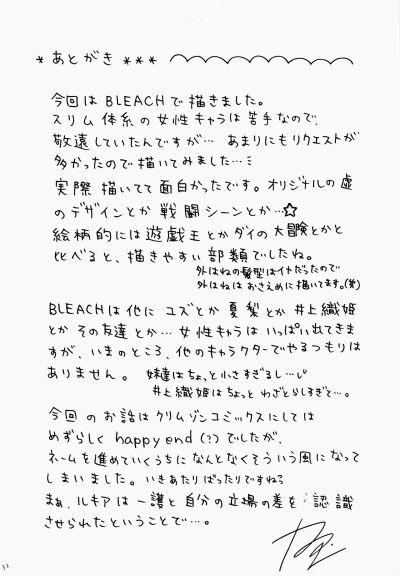 * あとがき ***
今回は BLEACHで描きました。
スリム体系の女性キャラは苦手なので、
敬遠していたんですが… あまりにもリクエストが
多かったので描いてみました…
実際描いてて面白かったです。オリジナルの虚
のデザインとか戦闘シーンとか…☆
絵柄的には遊戯王とかダイの大冒険とかと
比べると、描きやすい部類でしたね。
外はねの髪型はイヤだったので
外はねはおさえめに描いてます。(笑)
BLEACHは他に ユズとか夏梨とか 井上織姫
とか その友達とか… 女性キャラは いっぱい出てきま
すが、いまのところ、他のキャラクターでやるつもりは
ありません。 妹達はちょっと小さすぎるし…
井上織姫はちょっと わざとらしすぎて…。
今回の お話は クリムゾンコミックスにしては
めずらしく happy end (?)でしたが、
ネームを進めていくうちに なんとなくそういう風になって
しまいました。 いきあたりばったりですね?
まぁ、ルキアは一護と自分の立場の差を 認識
させられたということで…。